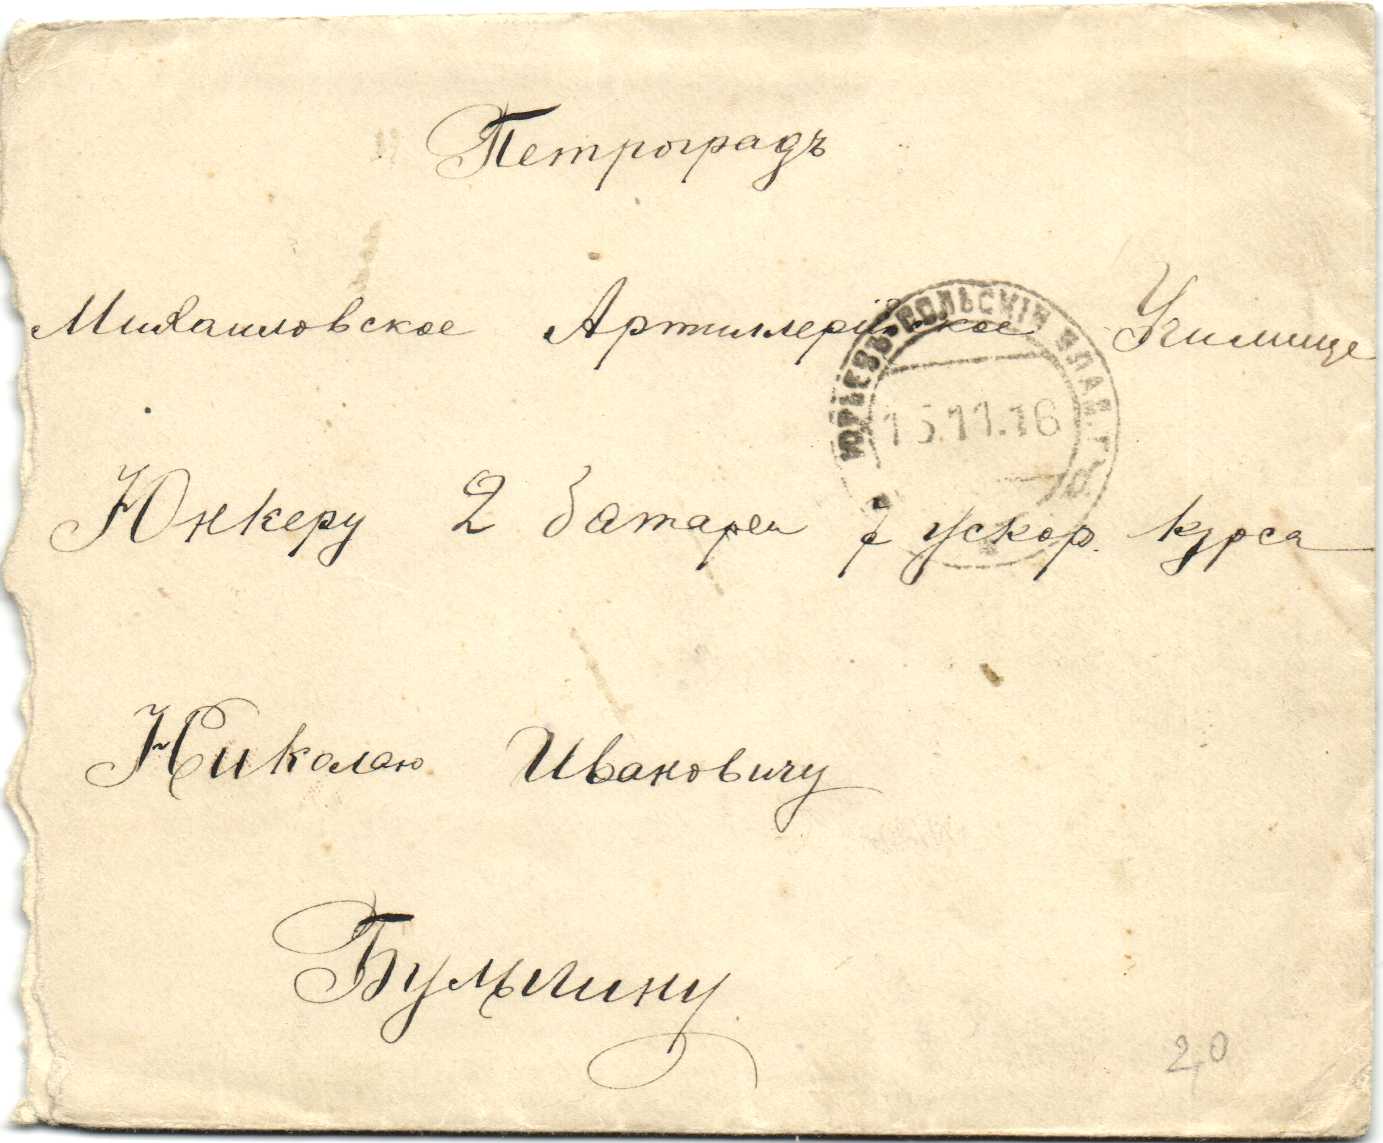 Петроградъ
Михаиловское Артиллерійское Училище
ЮРЬЕВЪ-ПОЛЬСКІЙ ВЛАД. ГУБ.
15.11.16
Юнкеру 2 батареи 7 ускор. курса
Николаю Ивановичу
Булыгину
20